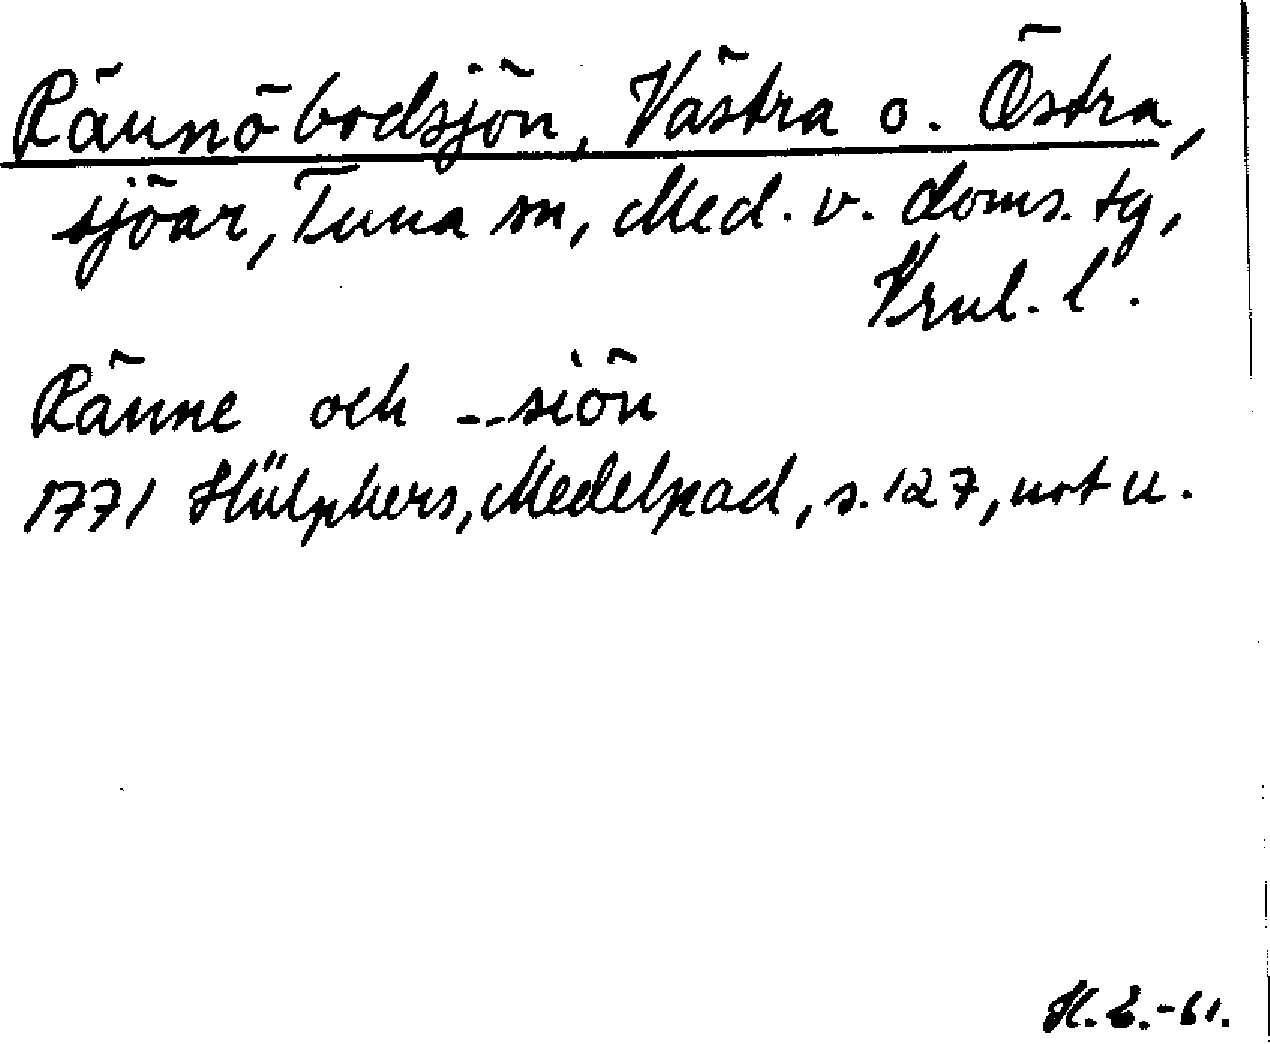 Rännöbodsjön, Västra o. Östra,
sjöar, Tuna sn, Med. v. doms. tg,
Vrnl. l.
Ränne och --siön
1771 Hülphers, Medelpad, s. 127, not u.
H. E. -61.